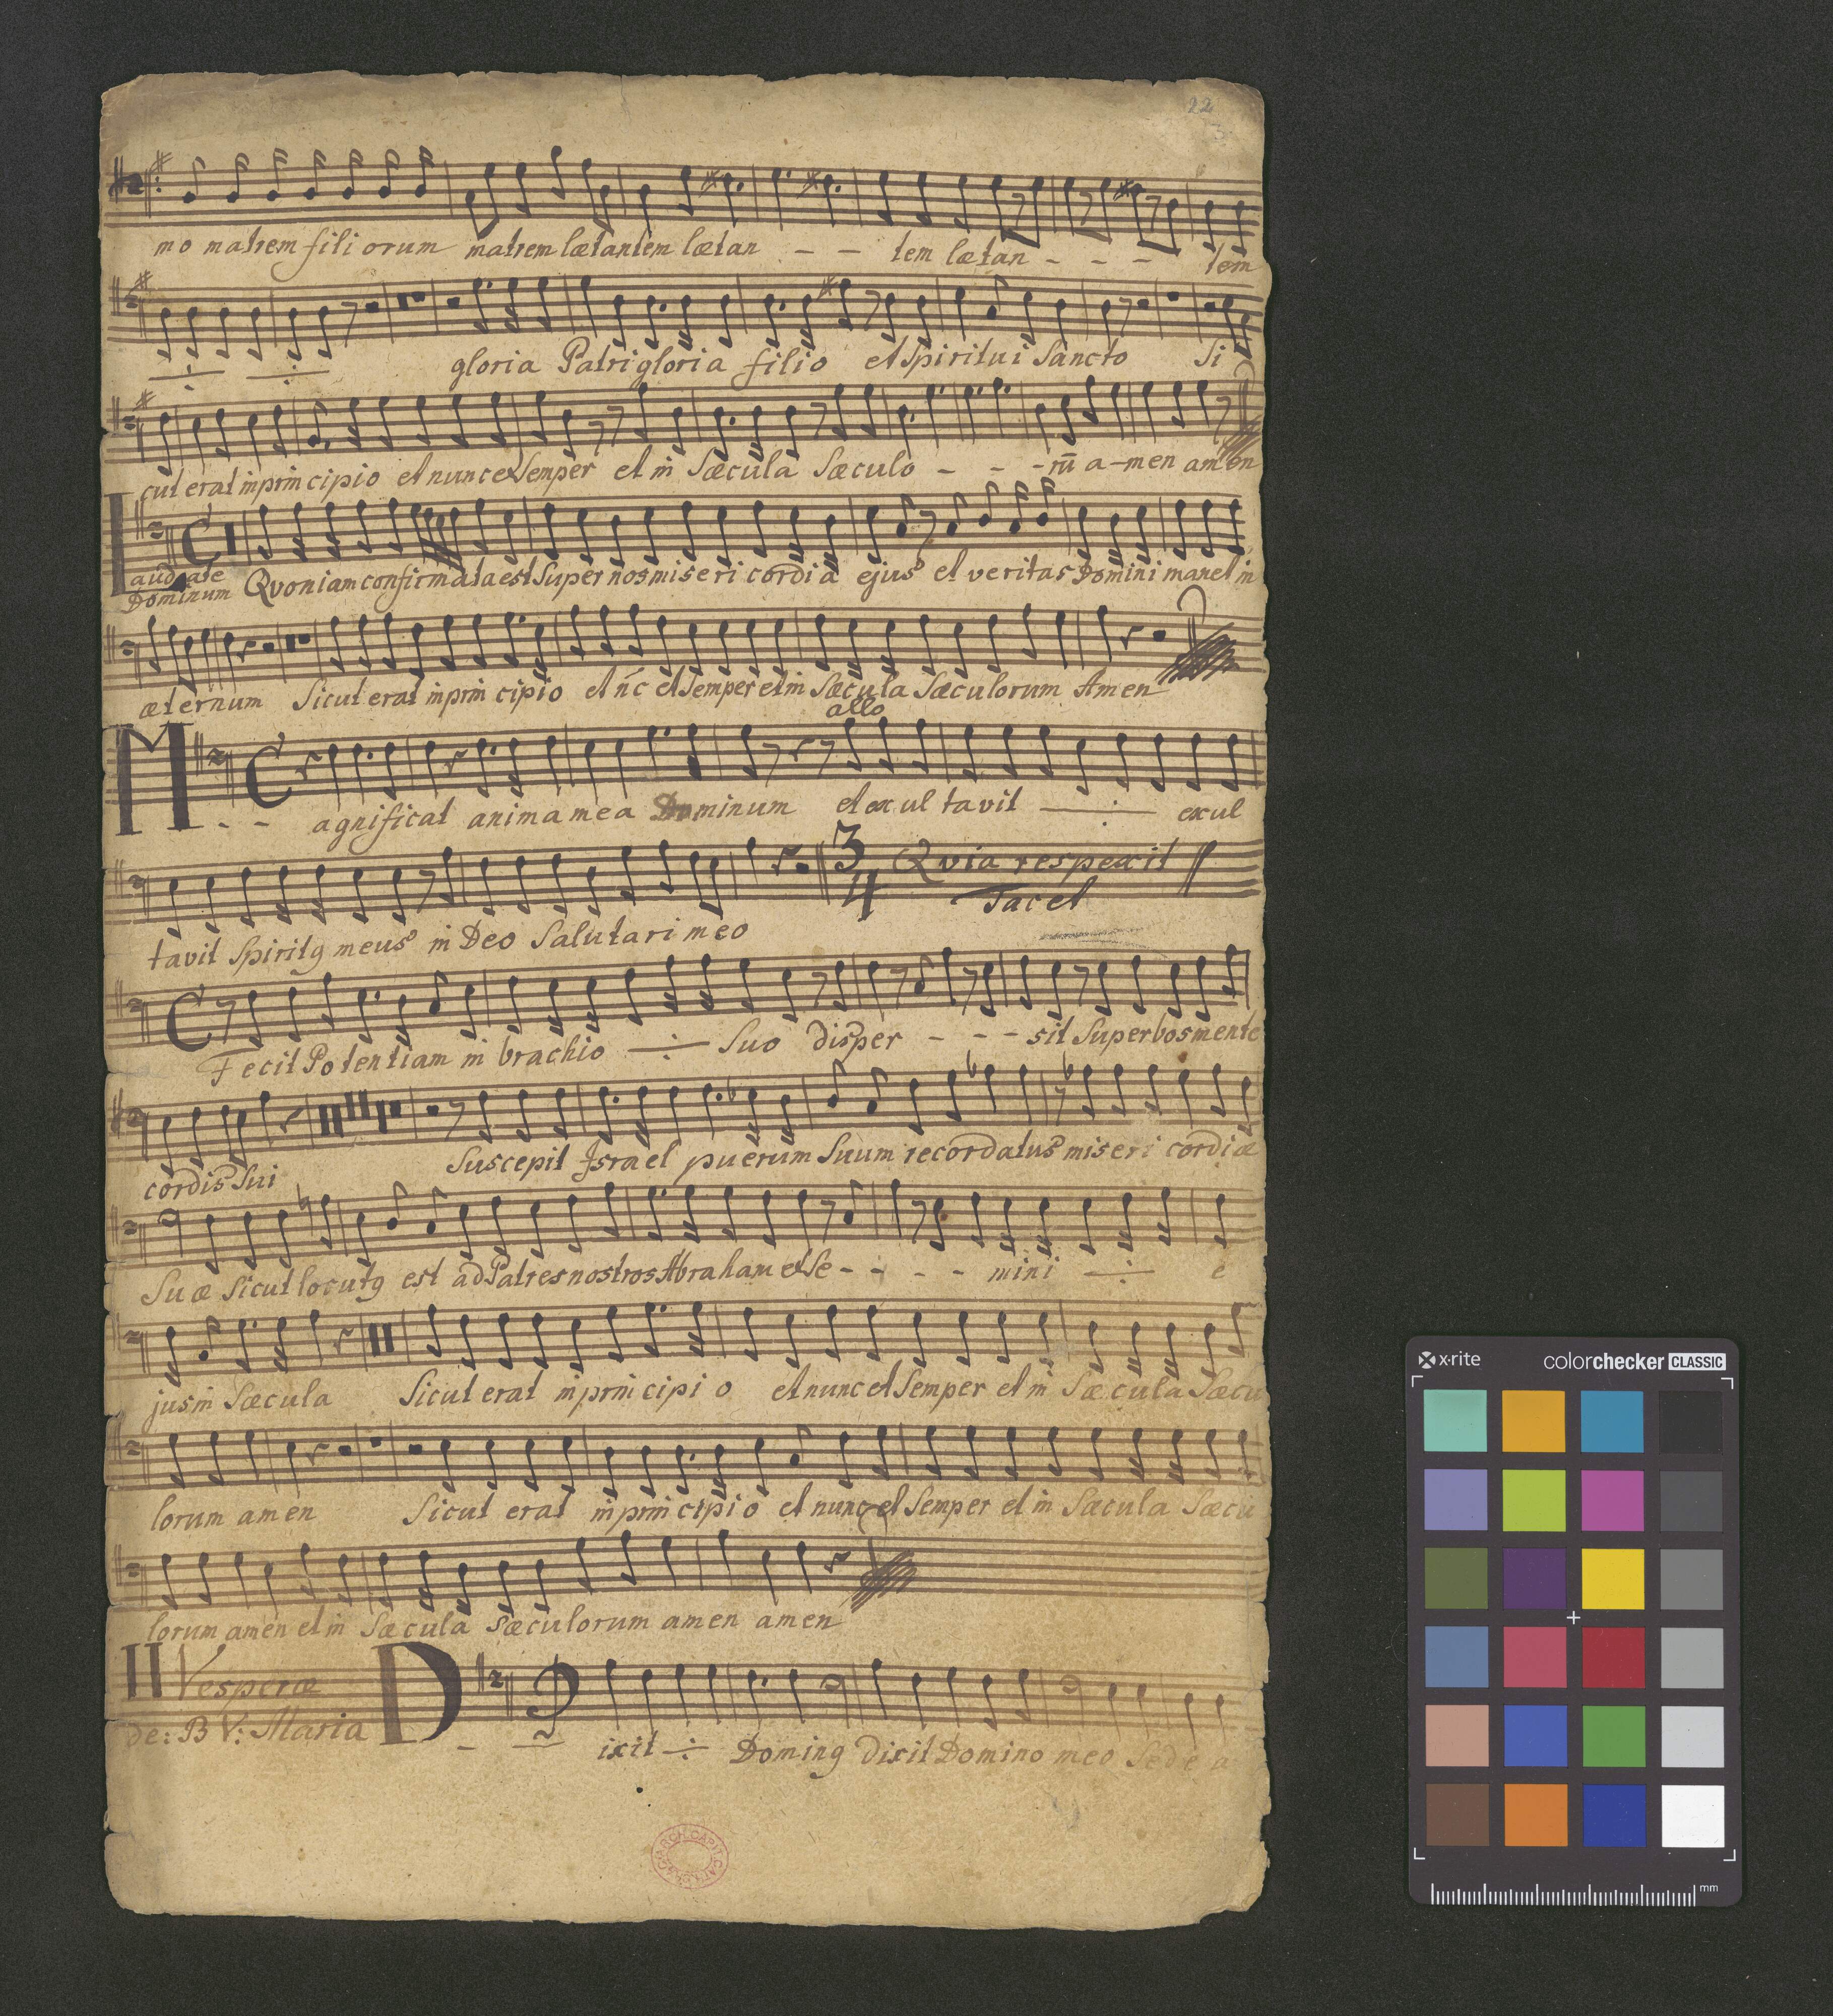 22
3
mo matrem fili orum matrem lætantem lætan - - tem lætan - - - tem
gloria Patri gloria filio et Spiritui Sancto Si
cut erat in prin cipio et nunc et Semper et in Sæcula Sæculo - - - rū a-men amen
Laudate
Dominum Qvoniam confirmata est Super nos miseri cordia ejus et veritas Domini manet in
æternum Sicut erat in prin cipio et nc̄ et Semper et in Sæcula Sæculorum Amen
allo
M - - agnificat anima mea Dominum et ex ul tavit exul
3
4 Qvia respexit
Tacet
tavit Spiritg meus in Deo Salutari meo
Fecit Potentiam in brachio Suo disper - - - sit Superbos mente
cordis Sui Suscepit Israel puerum Suum recordatus miseri cordiæ
Suæ Sicut locutg est ad Patres nostros Abraham et Se - - - - mini e
jus in Sæcula Sicut erat in prin cipi o et nunc et Semper et in Sæcula Sæcu
lorum amen Sicut erat in prin cipi o et nunc et Semper et in Sæcula Sæcu
lorum amen et in Sæcula Sæculorum amen amen
II Vesperæ
de: B V: Maria D - - ixit Doming Dixit Domino meo Sede a
x-rite colorchecker CLASSIC
mm